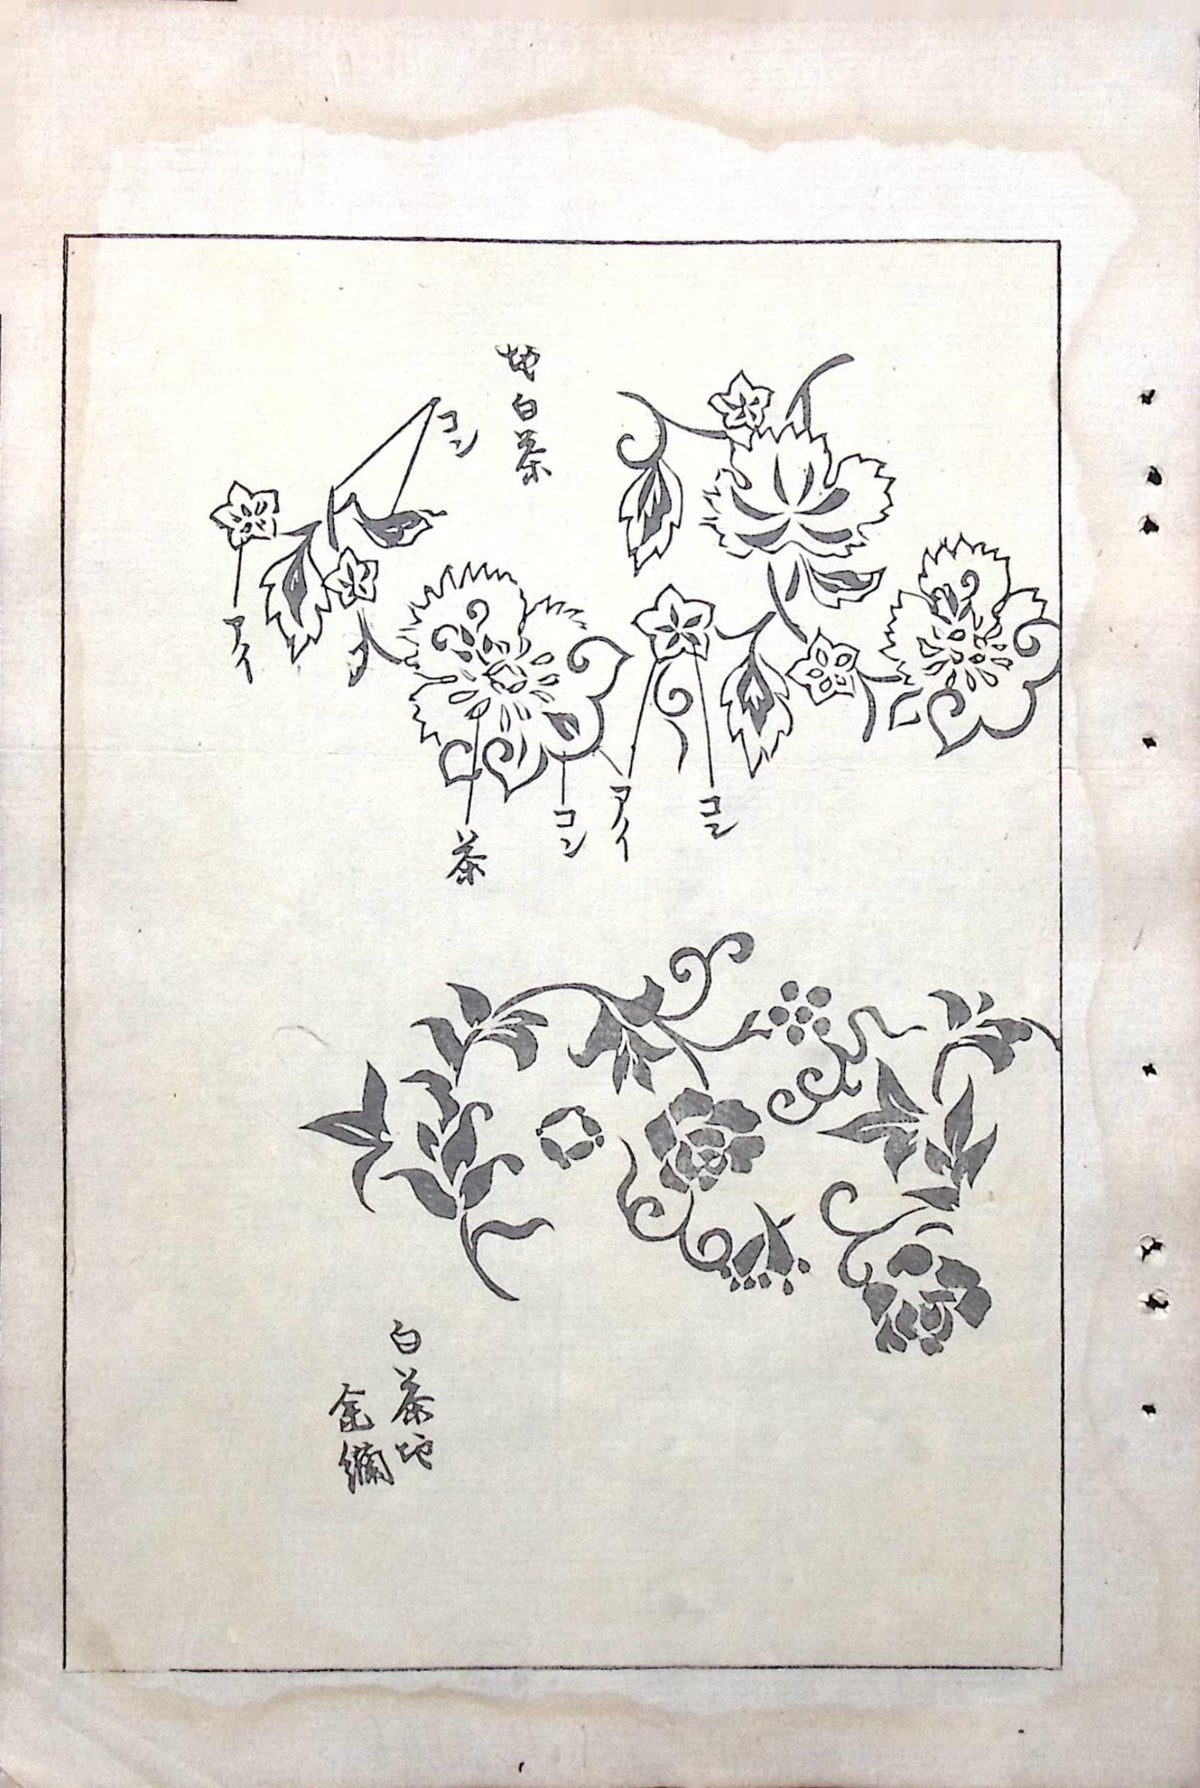 地白茶
コン
アイ
コン
アイ
コン
茶
白茶地
金襴